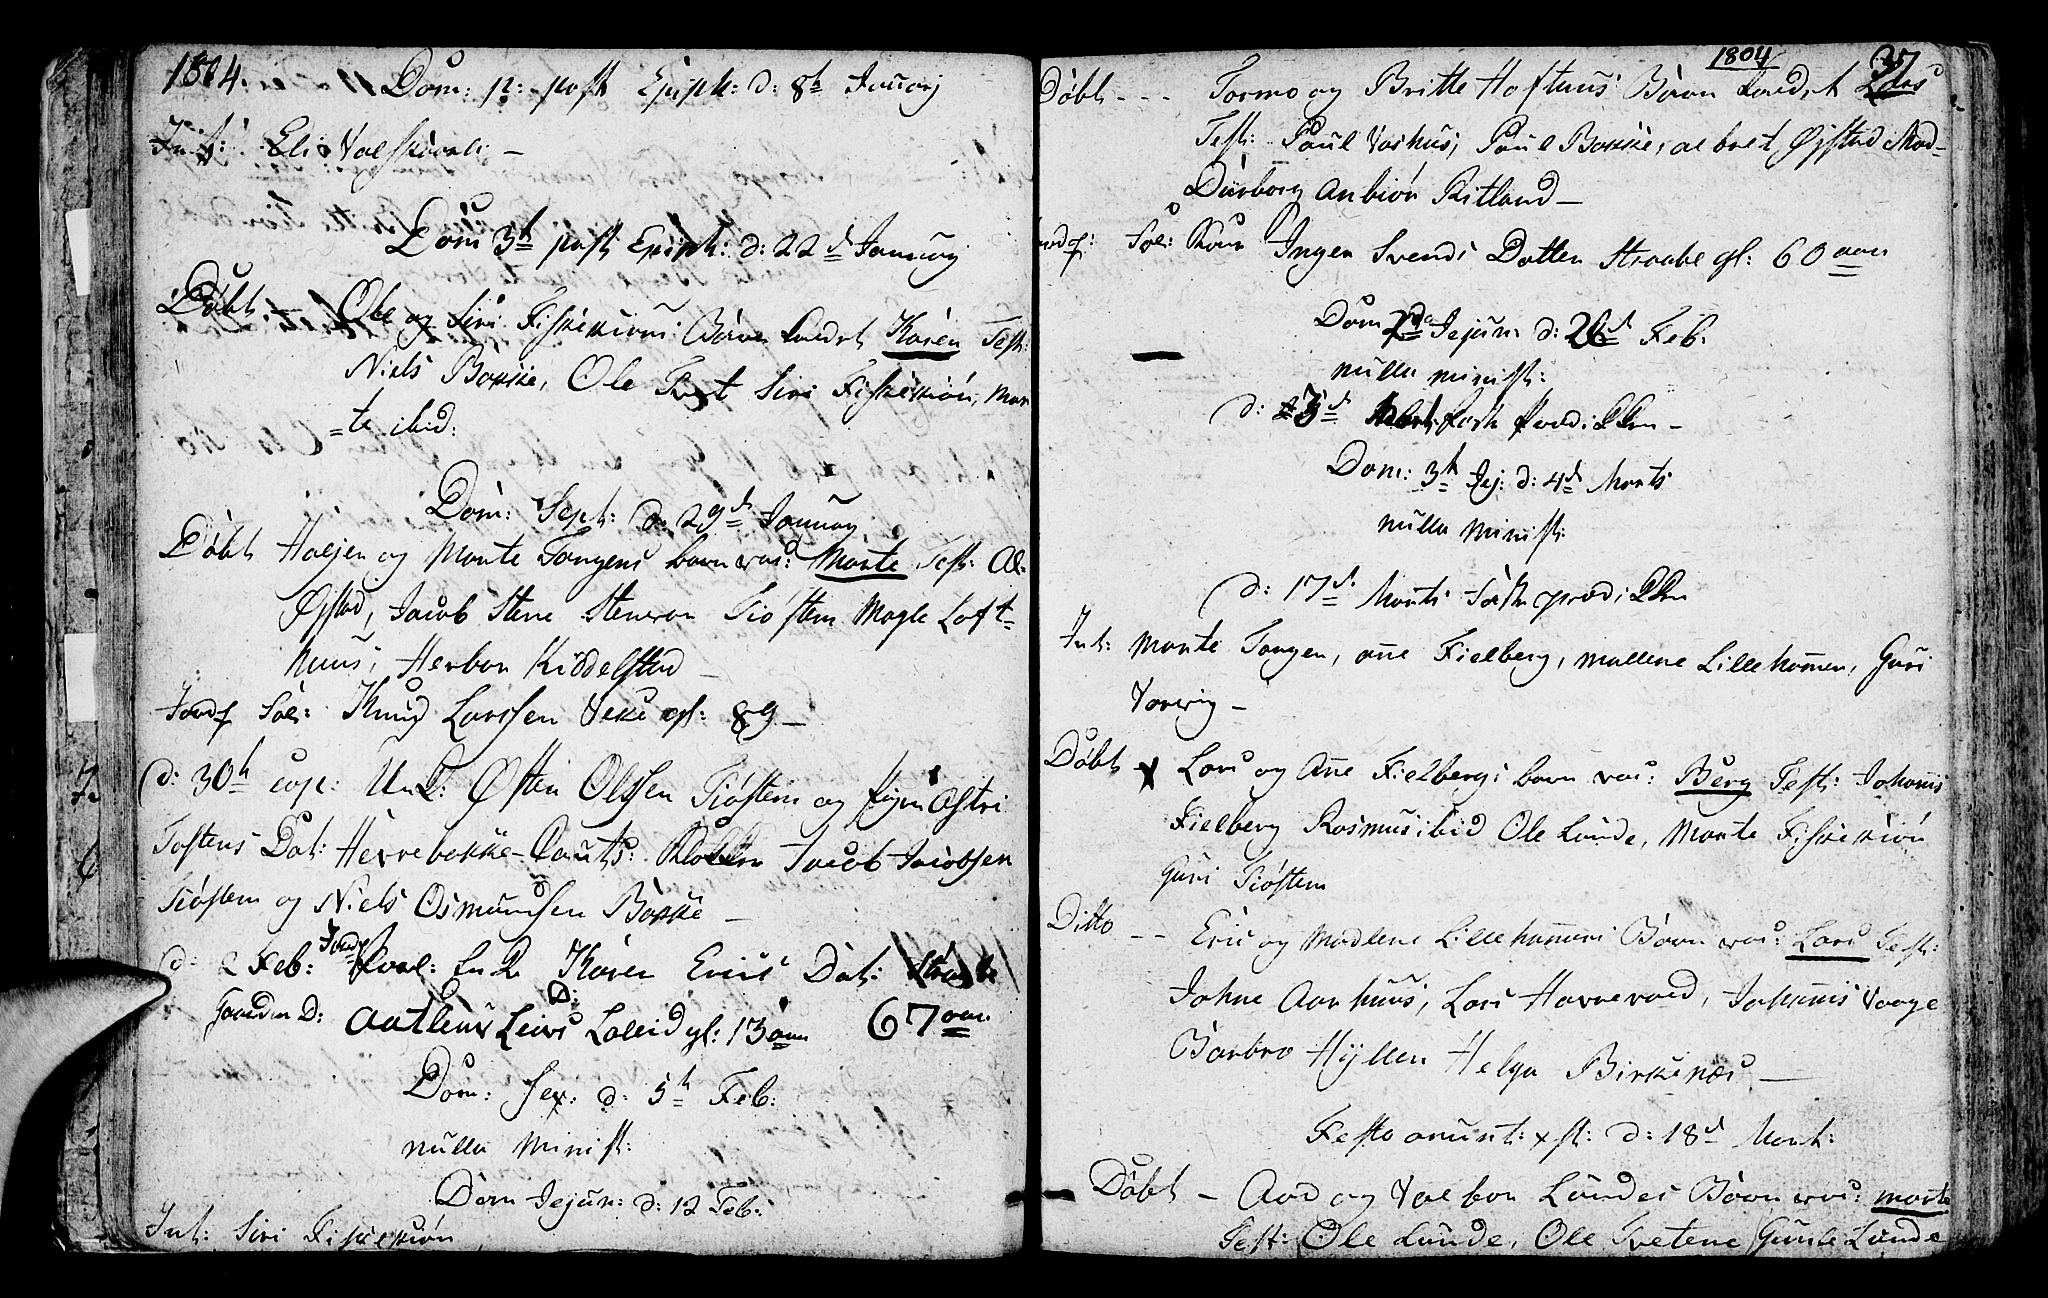 1804.
Dom: p: post Epiph: d: 8h January
Int: Eli Valskaar: –
Dom 3h post Epiph: d: 22d January
Døbt Ole og Siri Fiskekiøns Børn kaldet Karen Test:
Niels Bakke, Ole Siri Fiskekiøn, Mar
=te ibid:
Dom: Sept: d: 29d January
Døbt Haljer og Marte Tangens barn var: Marte Test: Ol:
Øfstad, Jacob Stene Stenvor Tiøstem Magle Loft=
huus, Herbor Kiddelstad –
Jordf Sal: Knud Larssen Veke gl: 89 –
d: 30h cop: Un.K: Østen Olssen Tiøstem og pigen Astri
Tostens Dat: Herrebakke – Caut: Jacob Jacobsen
Tiøstem og Niels Osmundsen Bakke –
d: 2 Feb: Jordf En Q Karen Erics Dat: Straabe
D: Aatlaus Leirs Dat gl: 13 aar 67 aar
Dom: Sex: d: 5h Feb:
nulla minist:
Dom Jejun: d: 12 Feb:
Int: Siri Fiskekiøn
1804 37
Døbt – – – Tormo og Britte Hoftuns Børn kaldet Lars
Test: Poul Vashus, Poul Bakke, Øfstad Mad–
Durborg Anbiør Ritland –
Jordf: Sal: Kone Inger Svends Datter Straabe gl: 60 aar
Dom 2da Jejun: d: 26d Feb:
nulla minist:
d: Fast præd:
Dom: 3h Jej: d: 4d Marts
nulla minist:
d: 17d Marts Faste præd:
Int: Marte Tangen, Ane Fielberg, Mallene Lillehamer, Guri
Varvig –
Døbt x Lars og Ane Fielbergs barn var: Berg Test: Johanis
Fielberg Rasmus ibid Ole Lunde, Marte Fiskekiøn
Guri Tiøstem
Ditto – – Eric og Madlene Lillehamers Børn var: Lars Test:
Johne Aarhuus, Lars Havrevold, Johanis Vaage
Barbro Hyllen Helga Birkenæs –
Festo anunt: xst: d: 18d Mart:
Døbt – Aad og Valbor Lundes Børn var: Marte
Test: Ole Lunde, Ole Tvetene Gunle Lunde